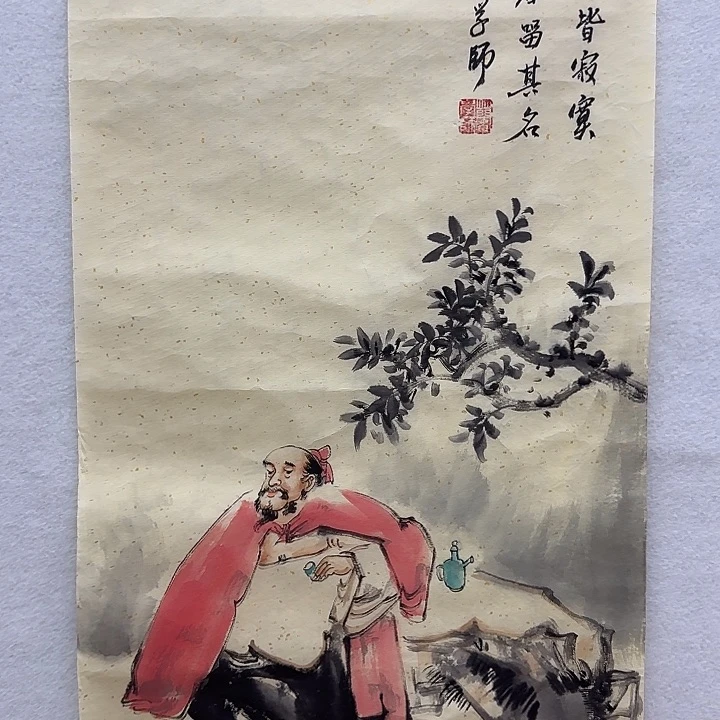 皆寂寞
留其名
学師